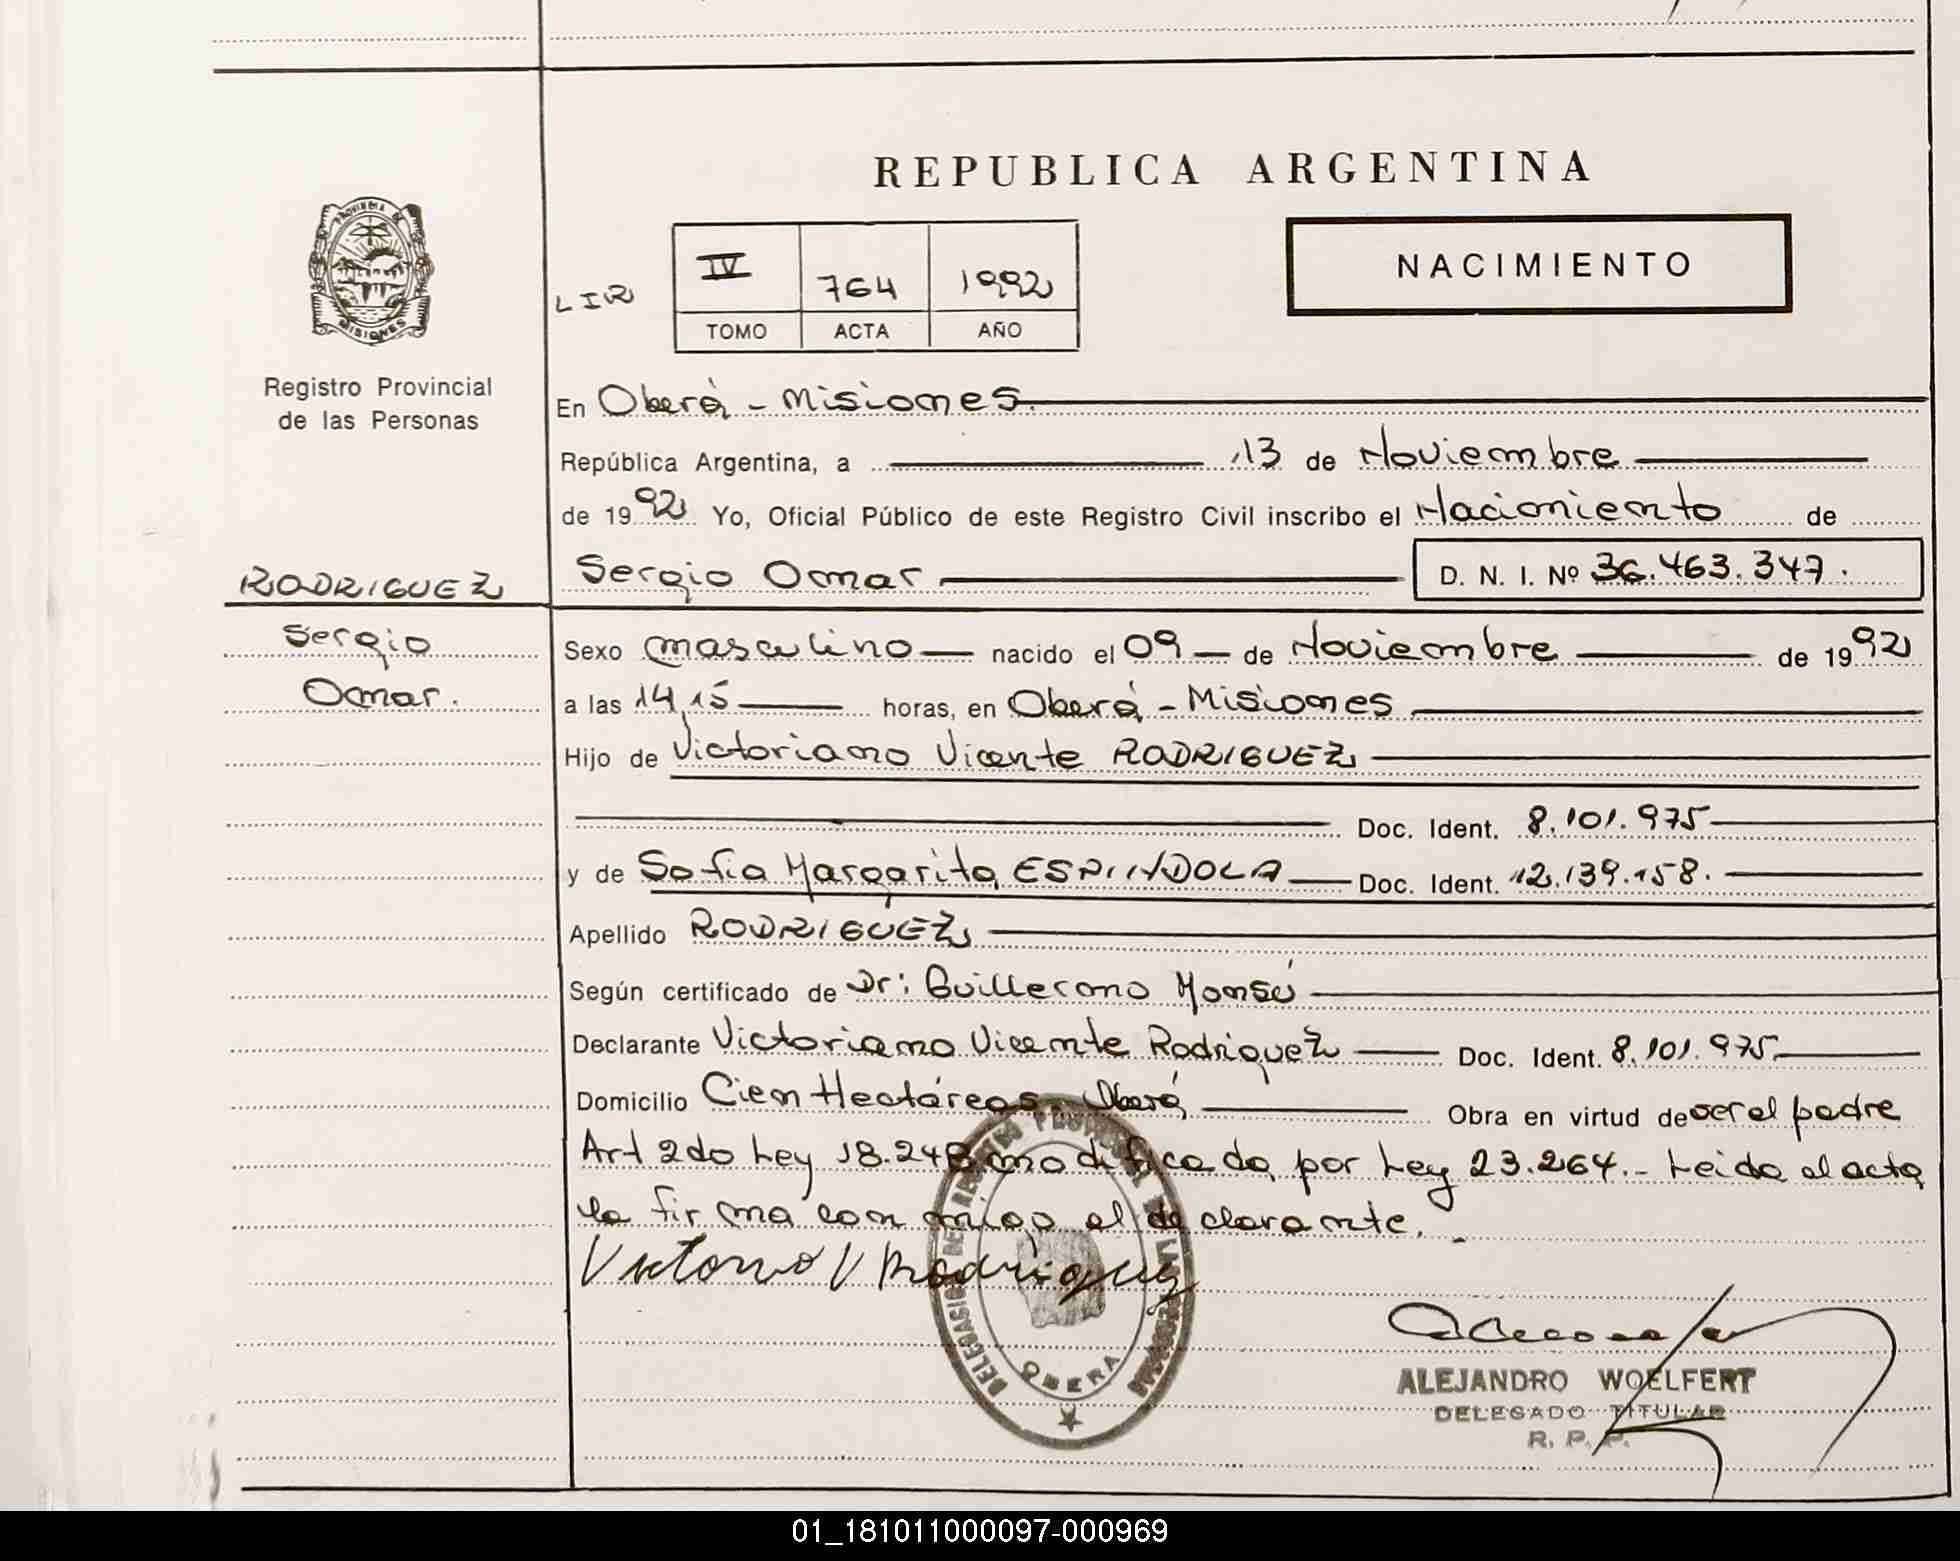 REPUBLICA ARGENTINA
PROVINCIA DE
MISIONES
Registro Provincial
de las Personas
NACIMIENTO
LIR
IV 764 1992
TOMO ACTA AÑO
En Oberá - Misiones.
República Argentina, a 13 de Noviembre
de 1992 Yo, Oficial Público de este Registro Civil inscribo el Nacimiento de
RODRIGUEZ
Sergio Omar D. N. I. Nº 36.463.347.
Sergio
Omar.
Sexo masculino nacido el 09 de Noviembre de 1992
a las 14,15 horas, en Oberá - Misiones
Hijo de Victoriano Vicente RODRIGUEZ
Doc. Ident. 8.101.975
y de Sofia Margarita ESPINDOLA Doc. Ident. 12.139.158.
Apellido RODRIGUEZ
Según certificado de Dr: Guillermo Monsú
Declarante Victoriano Vicente Rodriguez Doc. Ident. 8.101.975
Domicilio Cien Hectáreas Oberá Obra en virtud de ser el padre
Art 2do Ley 18.248 modificada por Ley 23.264.- Leida el acta
la firma con migo el declarante.
Victoriano V Rodriguez
DELEGACION DEL REGISTRO PROVINCIAL DE LAS PERSONAS
OBERA
ALEJANDRO WOELFERT
DELEGADO TITULAR
R. P. P.
01_181011000097-000969